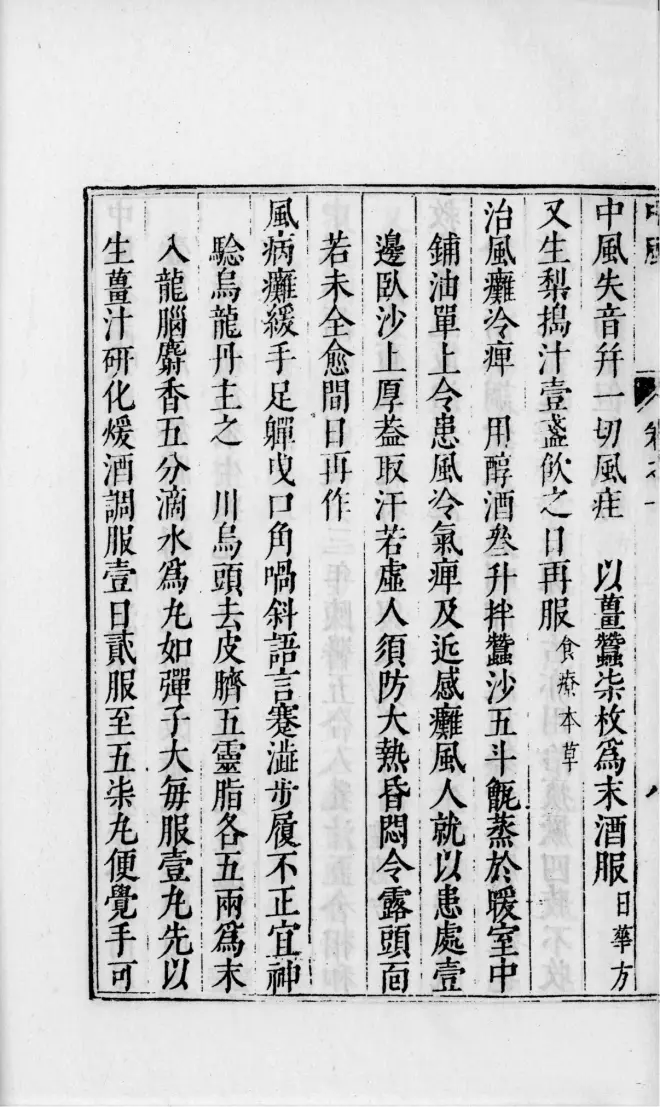 中風 卷之一 八
中風失音幷一切風疰 以薑蠶柒枚爲末酒服日華方
又生梨搗汁壹盞飮之日再服食療本草
治風癱冷痺 用醇酒叁升拌蠶沙五斗甑蒸於暖室中
鋪油單上令患風冷氣痺及近感癱風人就以患處壹
邊臥沙上厚葢取汗若虛人須防大熱昏悶令露頭靣
若未全愈間日再作
風病癱緩手足嚲曵口角喎斜語言蹇澁步履不正宜神
驗烏龍丹主之 川烏頭去皮臍五靈脂各五兩爲末
入龍腦麝香五分滴水爲丸如彈子大每服壹丸先以
生薑汁硏化煖酒調服壹日貳服至五柒丸便覺手可